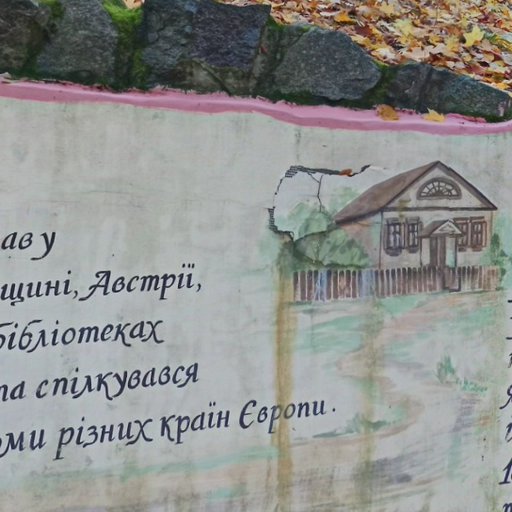 ав у
щині, Австрії,
бібліотеках
та спілкувався
оми різних країн Європи.